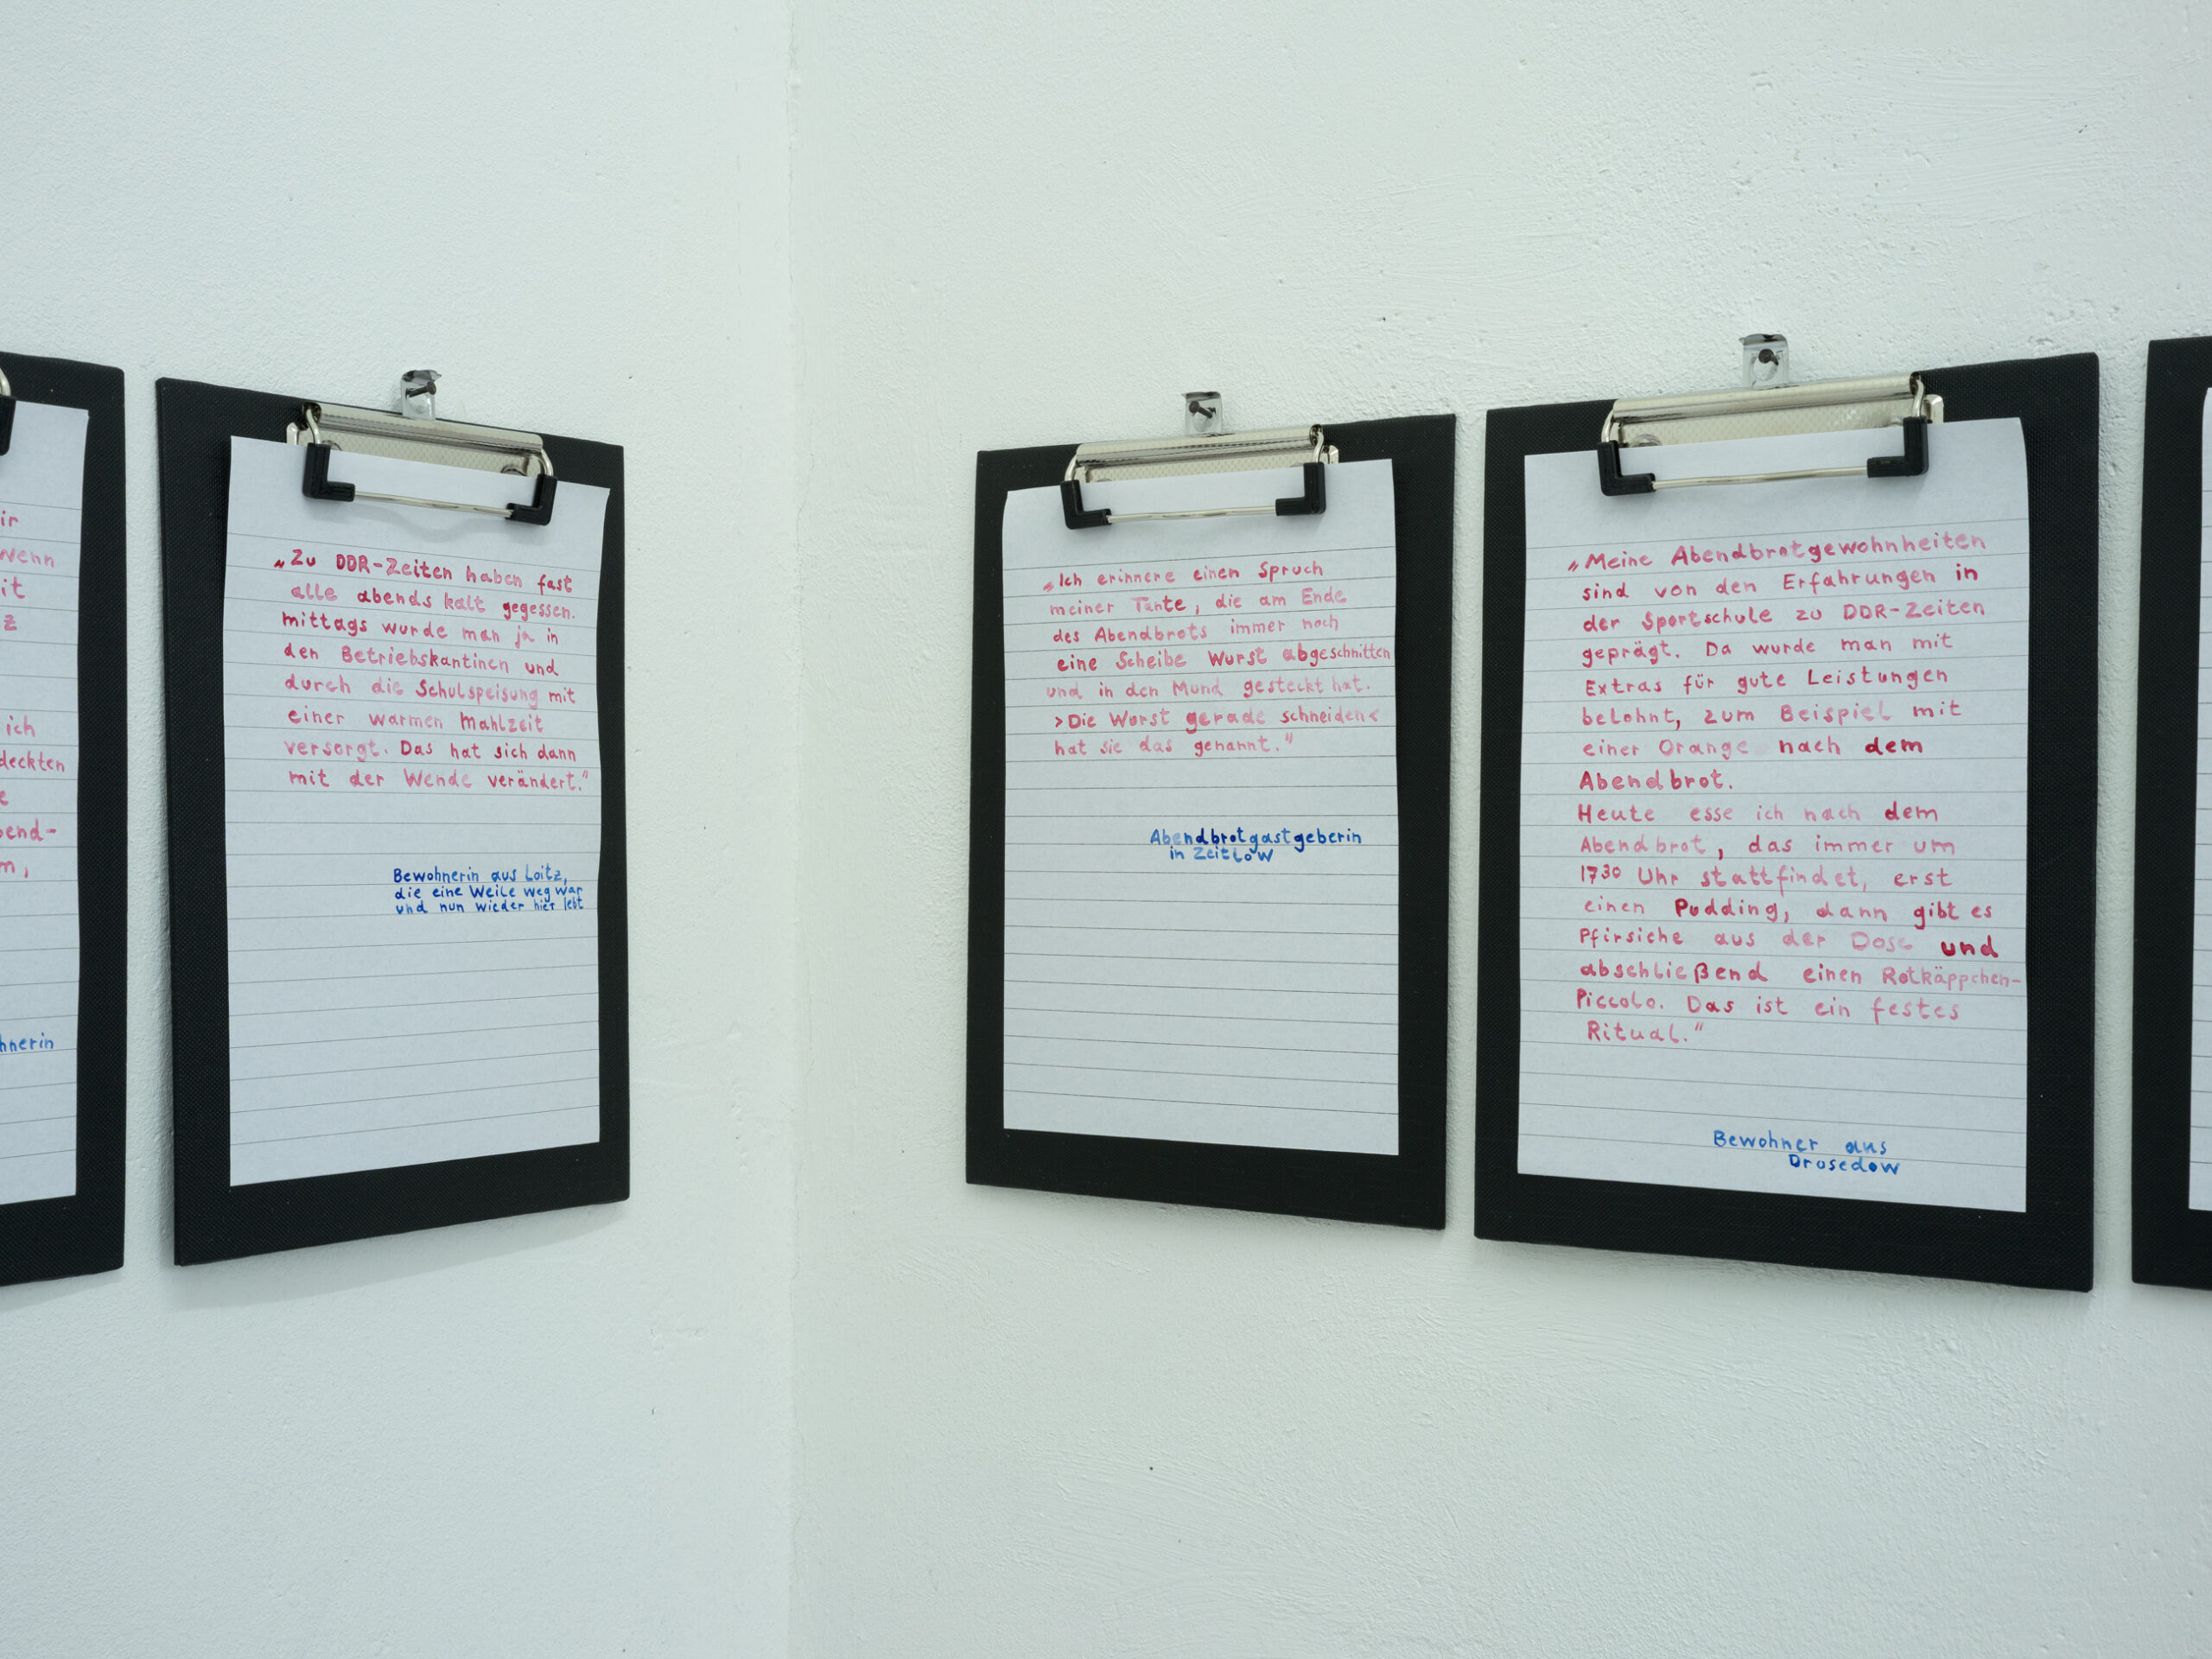 ir
wenn
it
z
ich
deckten
e
bend-
m,
hnerin
„Zu DDR-Zeiten haben fast
alle abends kalt gegessen.
mittags wurde man ja in
den Betriebskantinen und
durch die Schulspeisung mit
einer warmen Mahlzeit
versorgt. Das hat sich dann
mit der Wende verändert.“
Bewohnerin aus Loitz,
die eine Weile weg war
und nun wieder hier lebt
„Ich erinnere einen Spruch
meiner Tante, die am Ende
des Abendbrots immer noch
eine Scheibe Wurst abgeschnitten
und in den Mund gesteckt hat.
>Die Wurst gerade schneiden<
hat sie das genannt.“
Abendbrotgastgeberin
in Zeitlow
„Meine Abendbrotgewohnheiten
sind von den Erfahrungen in
der Sportschule zu DDR-Zeiten
geprägt. Da wurde man mit
Extras für gute Leistungen
belohnt, zum Beispiel mit
einer Orange nach dem
Abendbrot.
Heute esse ich nach dem
Abendbrot, das immer um
17³⁰ Uhr stattfindet, erst
einen Pudding, dann gibt es
Pfirsiche aus der Dose und
abschließend einen Rotkäppchen-
Piccolo. Das ist ein festes
Ritual.“
Bewohner aus
Drosedow